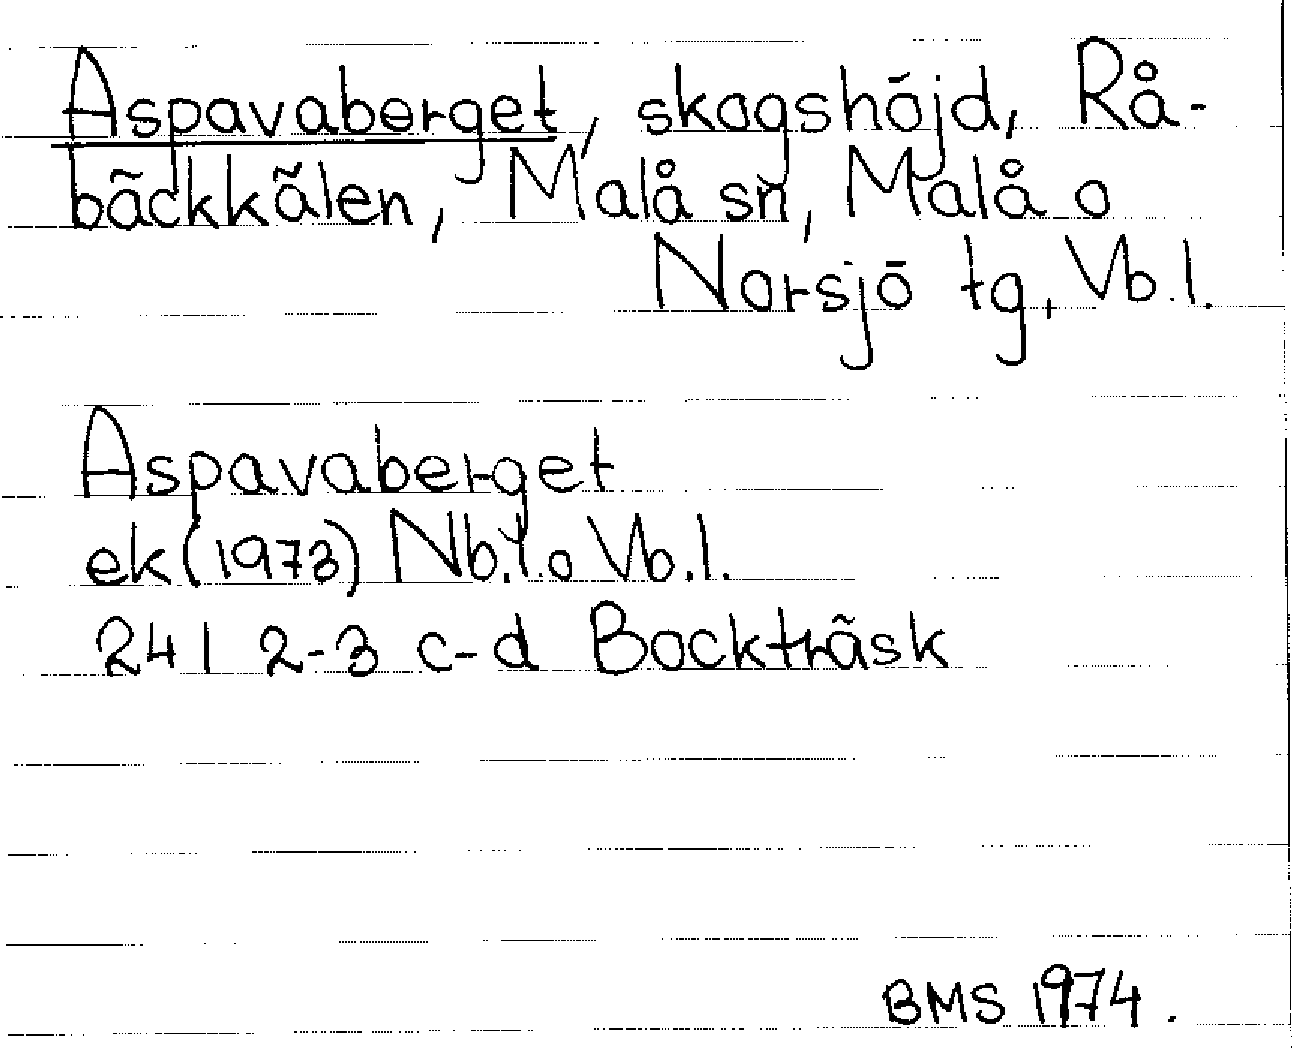 Aspavaberget, skogshöjd, Rå-
bäckkälen, Malå sn, Malå o
Norsjö tg, Vb.l.
Aspavaberget
ek (1973) Nb.l.o Vb.l.
24 I 2-3 c-d Bockträsk
BMS 1974.